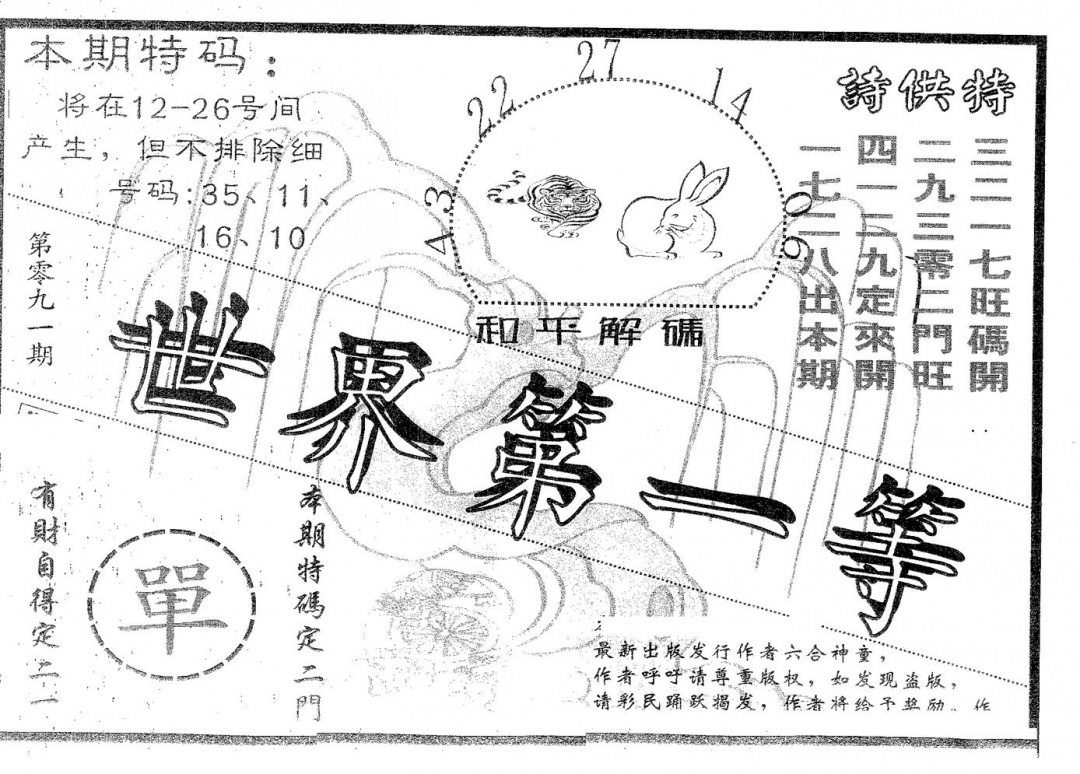 本期特码：
将在12-26号间
产生，但不排除细
号码:35、11、
16、10
第零九一期
22
27
14
43
09
和平解
特供詩
三三一七旺碼開
二九三零二門旺
四一二九定來開
一七二八出本期
世界第一等
有財自得定二一
單
本期特碼定二門
最新出版发行作者六合神童，
作者呼吁请尊重版权，如发现盗版，
请彩民踊跃揭发，作者将给予奖励。作